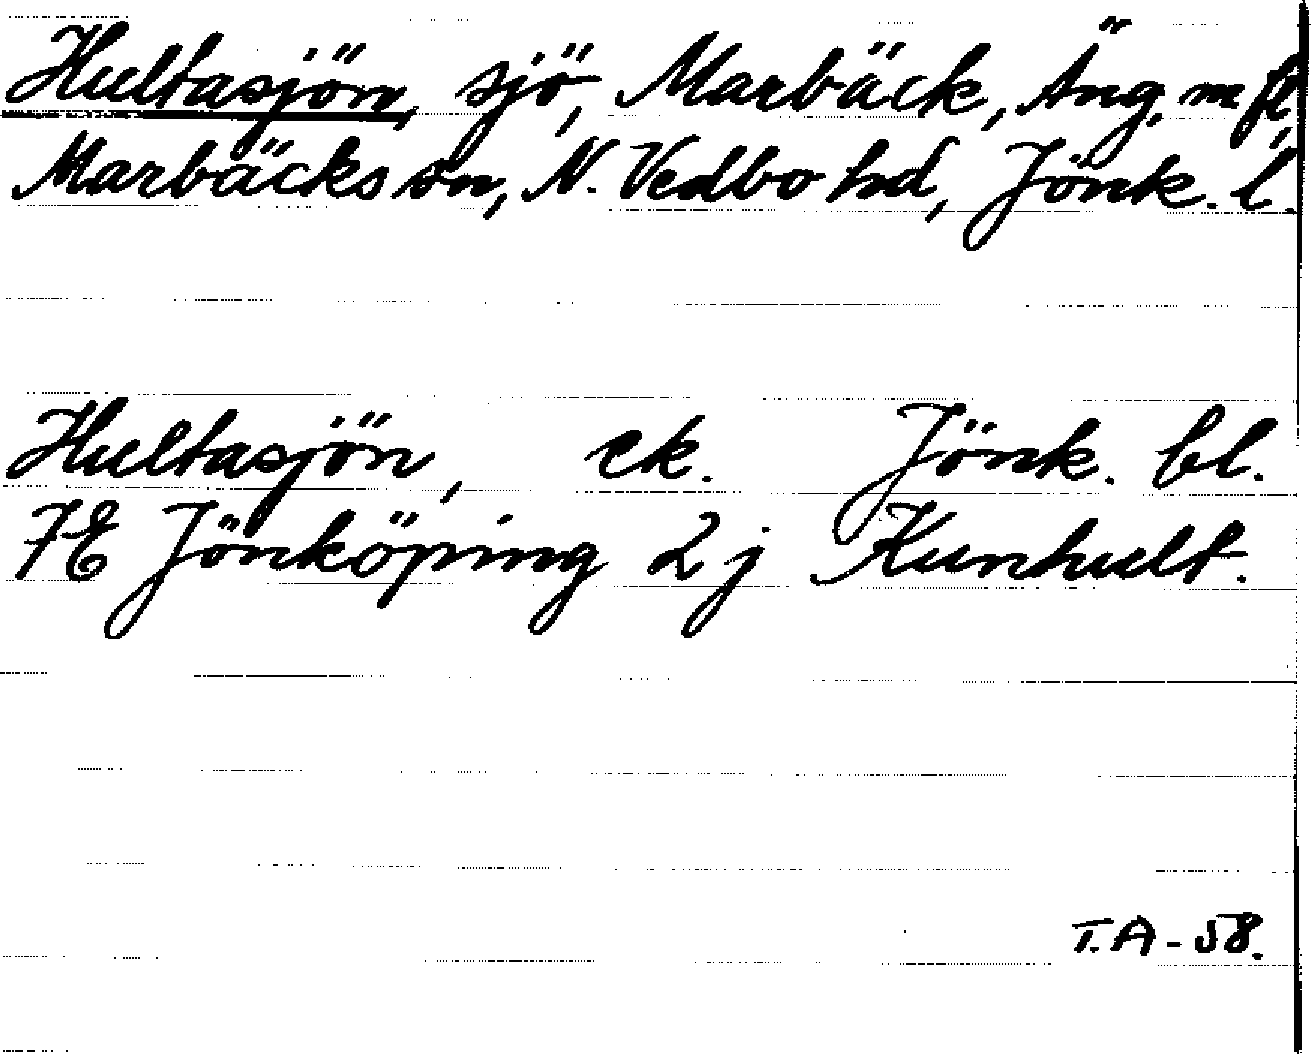 Hultasjön, sjö, Marbäck, Äng, m fl,
Marbäcks sn, N. Vedbo hd, Jönk. l.
Hultasjön, ek. Jönk. bl.
7E Jönköping 2j Kunhult.
T.A-58.